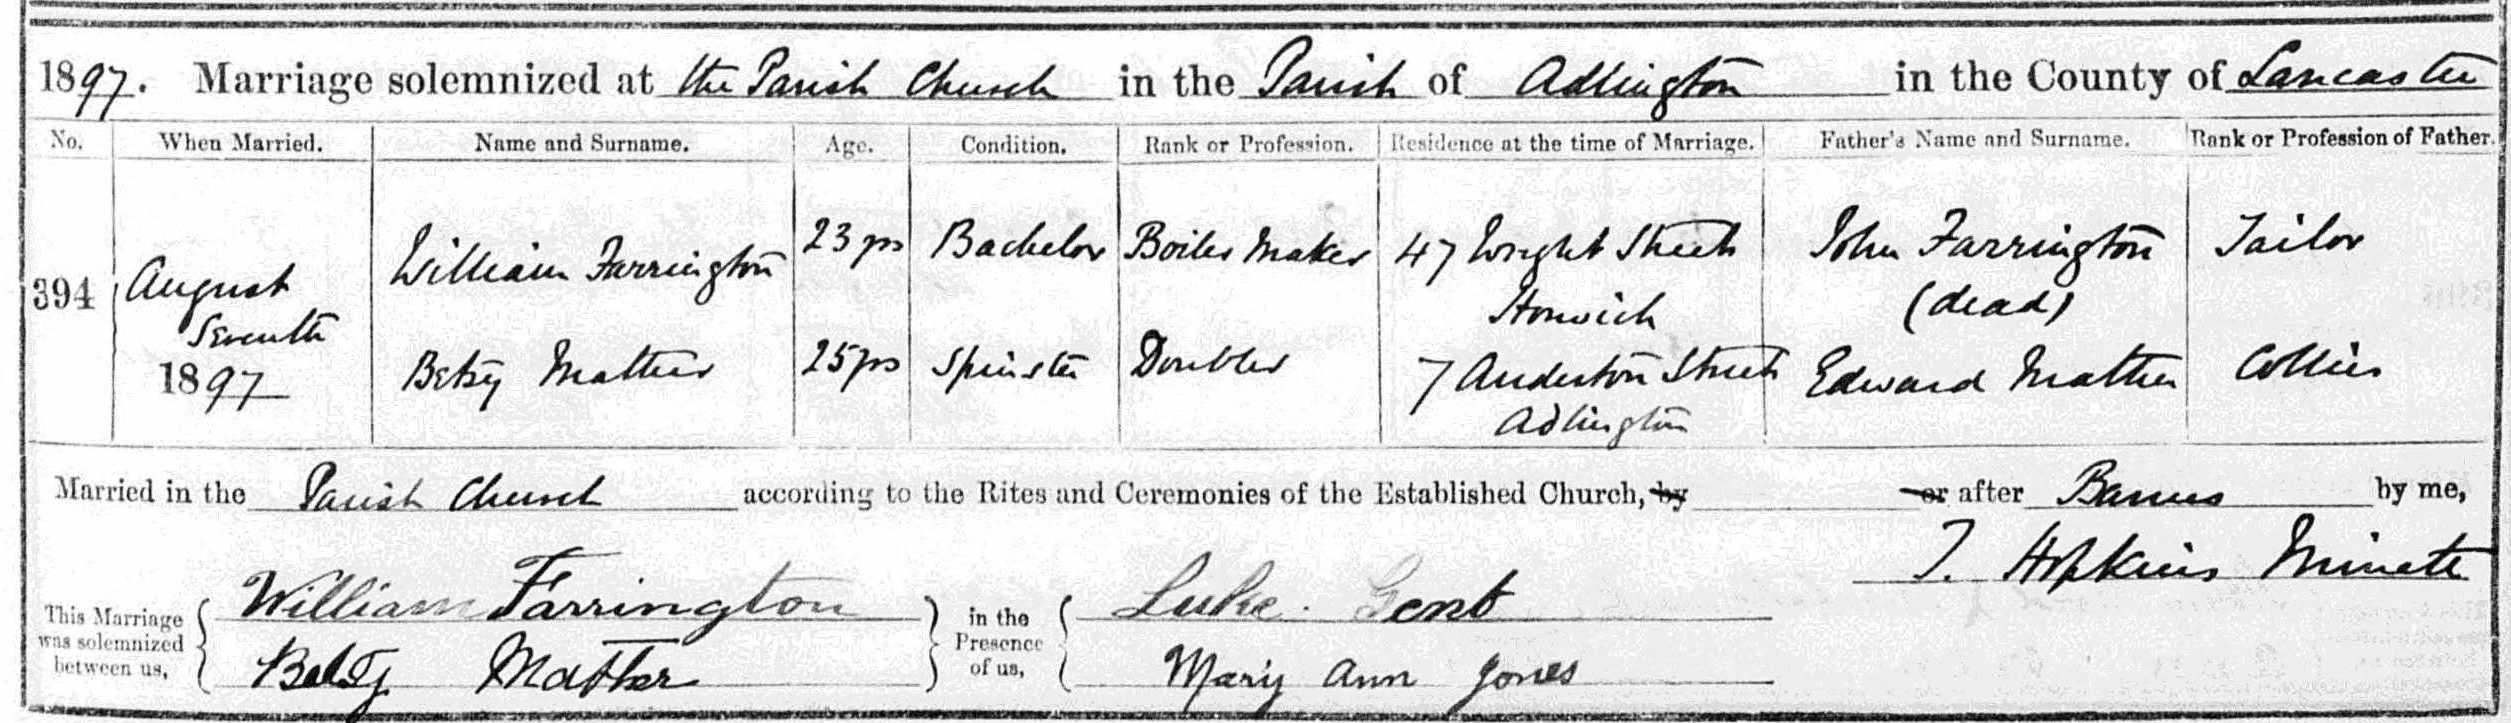 1897. Marriage solemnized at the Parish Church in the Parish of Adlington in the County of Lancaster
No. When Married. Name and Surname. Age. Condition. Rank or Profession. Residence at the time of Marriage. Father's Name and Surname. Rank or Profession of Father.
394 August Seventh 1897
William Farrington 23 yrs Bachelor Boiler Maker 47 Wright Street Horwich John Farrington (dead) Tailor
Betsy Mather 25 yrs Spinster Doubler 7 Anderton Street Adlington Edward Mather Collier
Married in the Parish Church according to the Rites and Ceremonies of the Established Church, by or after Banns by me,
T. Hopkins Minster
This Marriage was solemnized between us,
William Farrington
Betsy Mather
in the Presence of us,
Luke Gent
Mary Ann Jones